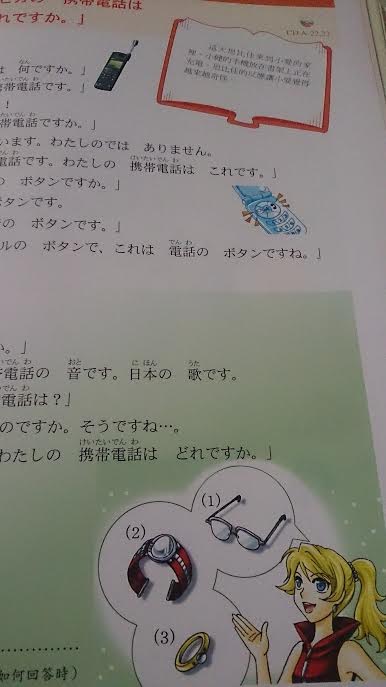 携帯電話は
れですか。」
CD A-22,23
這天思比佳來到小愛的家
裡,小健的手機放在書架上正在
充電,思比佳的反應讓小愛覺得
越來越奇怪…
は 何ですか。」
帯電話です。」
!
帯電話ですか。」
います。わたしのでは ありません。
電話です。わたしの 携帯電話は これです。」
の ボタンですか。」
ボタンです。
の ボタンです。
ルの ボタンで、これは 電話の ボタンですね。」
か。」
帯電話の 音です。日本の 歌です。
電話は?」
のですか。そうですね…。
わたしの 携帯電話は どれですか。」
(1)
(2)
(3)
如何回答時)